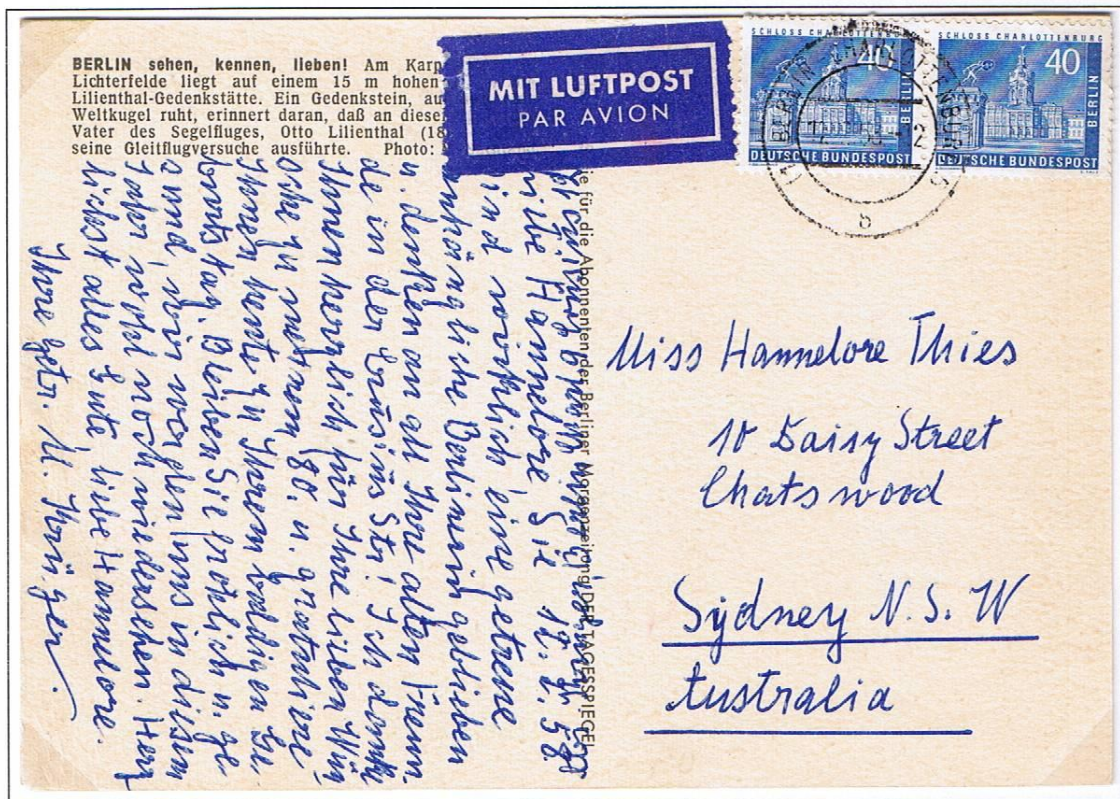 BERLIN sehen, kennen, lieben! Am Karp
Lichterfelde liegt auf einem 15 m hohen
Lilienthal-Gedenkstätte. Ein Gedenkstein, au
Weltkugel ruht, erinnert daran, daß an diese
Vater des Segelfluges, Otto Lilienthal (18
seine Gleitflugversuche ausführte. Photo:
MIT LUFTPOST
PAR AVION
SCHLOSS CHARLOTTENBURG
40
BERLIN
DEUTSCHE BUNDESPOST
SCHLOSS CHARLOTTENBURG
40
BERLIN
DEUTSCHE BUNDESPOST
BERLIN-CHARLOTTENBURG
b
für die Abonnenten der Berliner Morgenzeitung DER TAGESSPIEGEL
liebe Hannelore! Sie 12.2.58
sind wirklich eine getreue
anhängliche Berlinerin geblieben
u. denken an all Ihre alten Freun-
de in der Str! Ich danke
Ihnen herzlich für Ihre lieben Wün
sche zu meinem 80. u. gratuliere
Ihnen heute zu Ihrem baldigen Ge-
burtstag. Bleiben Sie fröhlich u. ge-
sund, wir werden uns in diesem
Jahr wohl noch wiedersehen. Herz
lichst alles Gute, liebe Hannelore.
Ihre getr. M. Krüger.
Miss Hannelore Thies
10 Daisy Street
Chatswood
Sydney N.S.W
Australia